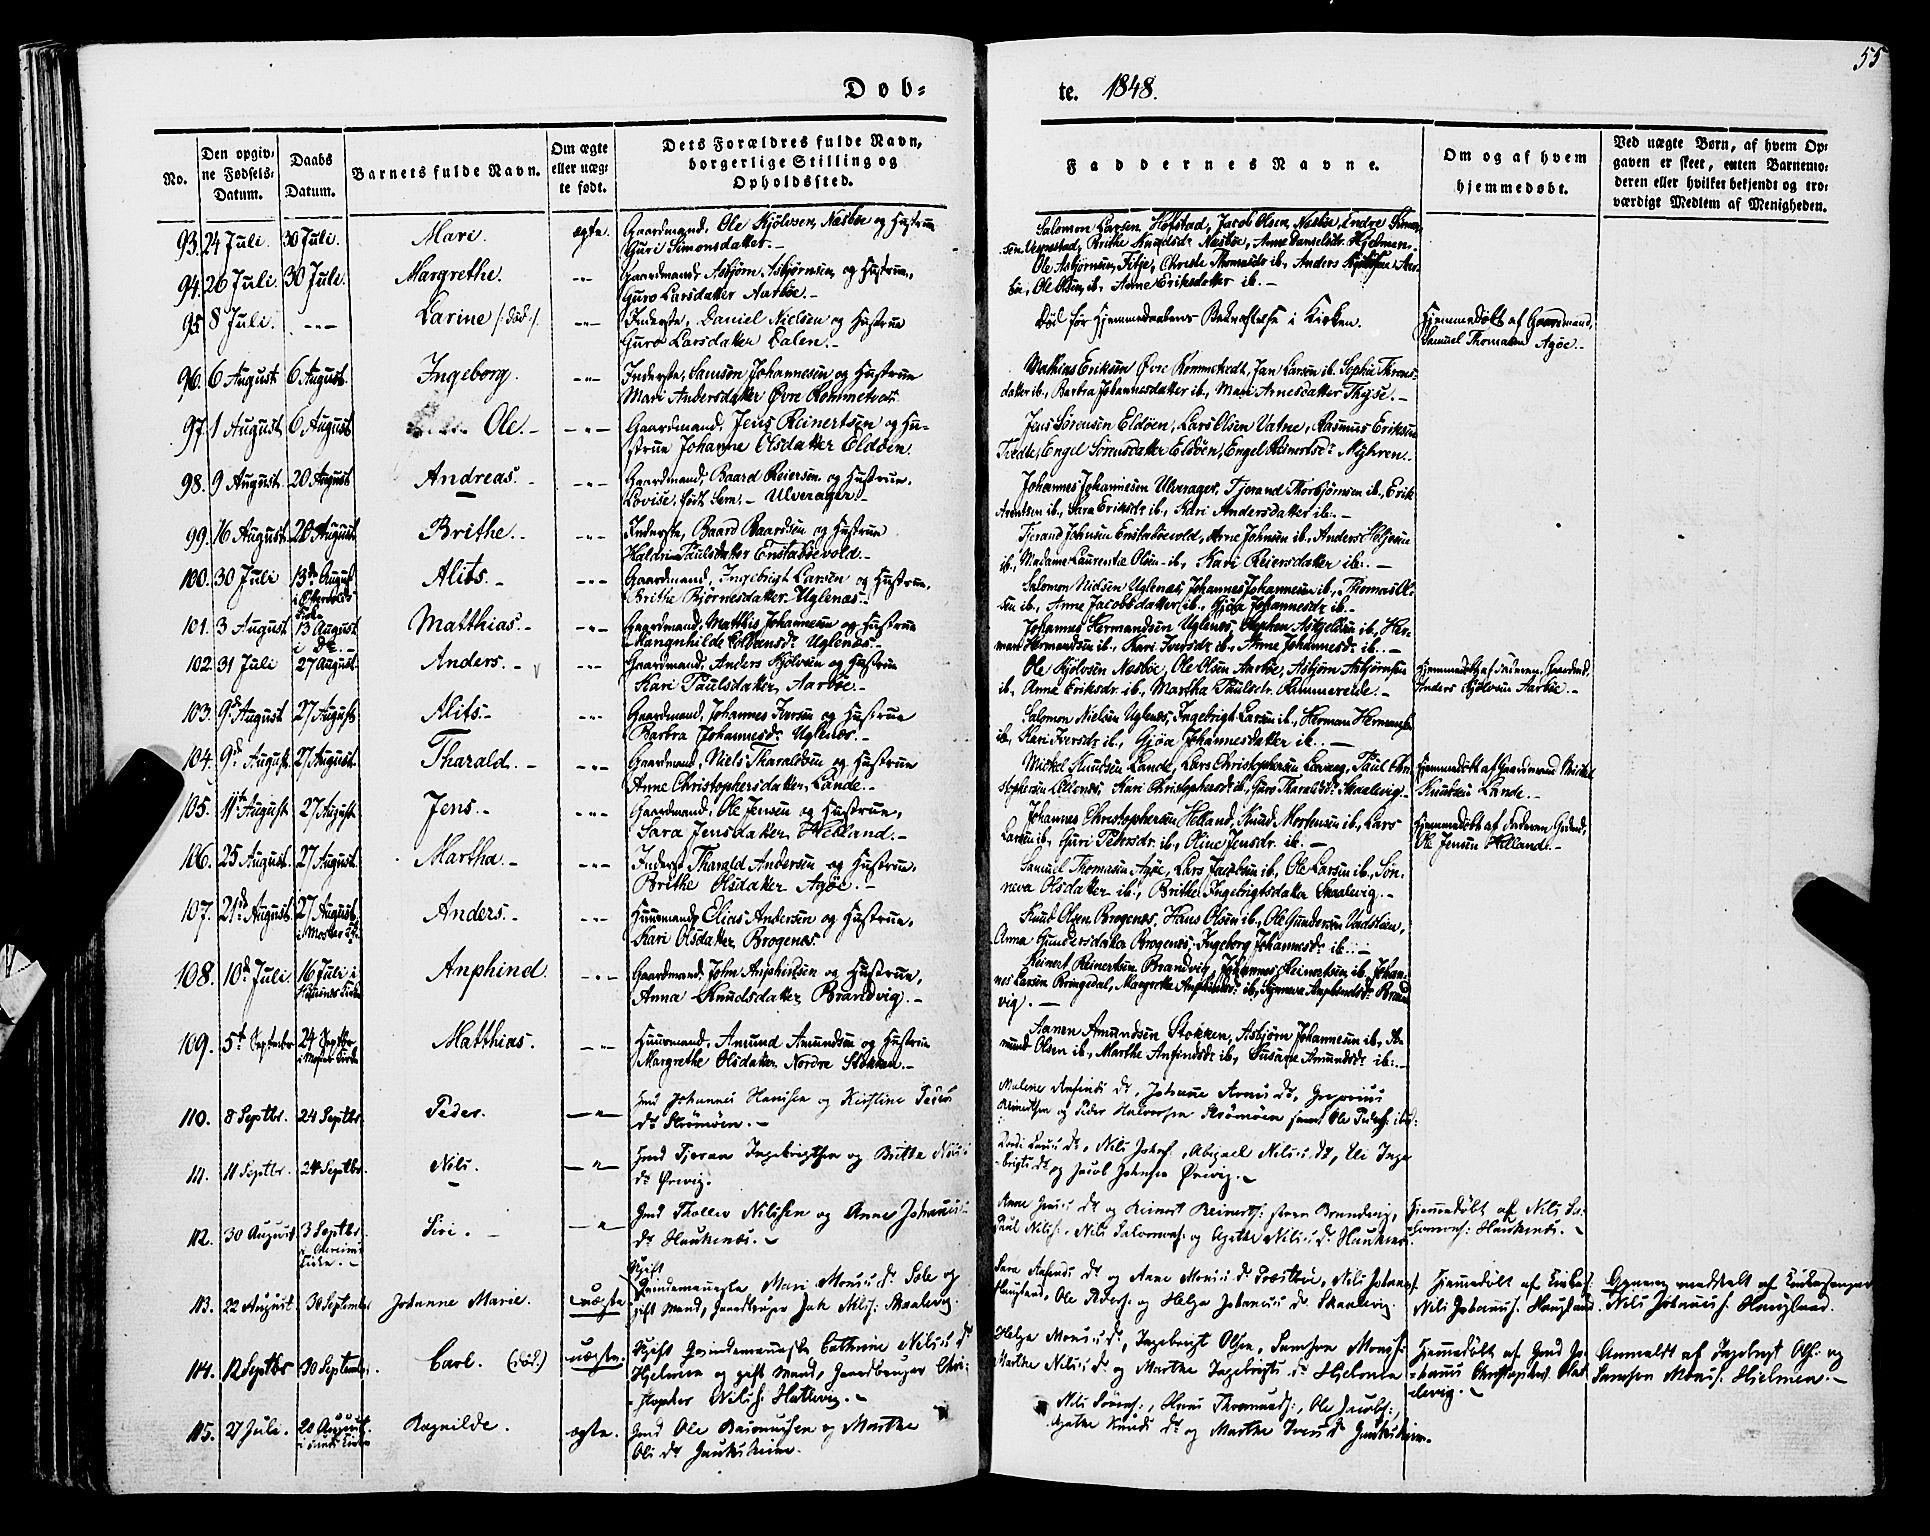 55
Døb-
te. 1848.
No.
Den opgiv-
ne Fødsels-
Datum.
Daabs
Datum.
Barnets fulde Navn.
Om ægte
eller uæg-
te født.
Dets Forældres fulde Navn,
borgerlige Stilling og
Opholdssted.
Faddernes Navne.
Om og af hvem
hjemmedøbt.
Ved uægte Børn, af hvem Op-
gaven er skeet, enten Barnemo-
deren eller hvilket bekjendt og tro-
værdigt Medlem af Menigheden.
93. 24 Juli. 30 Juli. Mari. ægte. Gaardmand, Ole Kjølvsen Næsbøe og Hustrue
Guri Simonsdatter.-
Salomon Larsen Hofstad, Jacob Olsen Næsbøe, Endre
Brithe Knudsdr Næsbøe, Anne Danielsdr Hjelmen.
94. 26 Juli. 30 Juli. Margrethe. -"- Gaardmand Asbjørn Asbjørnsen og Hustrue,
Guro Larsdatter Aarbøe.-
Ole Asbjørnsen Fitje, Christe Thomasdr ib., Anders
Ole Olsen ib., Anne Eriksdatter ib.-
95 8 Juli. -"- Larine /:død:/. -"- Inderste, Daniel Nielsen og Hustrue
Guro Larsdatter Dalen.-
Død før Hjemmedaabens Bekræftelse i Kirken.
Hjemmedøbt af Gaardmand,
Samuel Thomasen Agøe.-
96. 6 August 6 August. Ingeborg. -"- Inderste, Samson Johannesen og Hustrue
Mari Andersdatter Øvre Rommetvedt
Mathias Eriksen Øvre Rommetvedt, Jan Larsen ib. Sophia Thoms-
datter ib., Barbra Johannesdatter ib., Mari Arnesdatter Thyse.-
97. 1 August 6 August Ole.- -"- Gaardmand, Jens Reinertsen og Hu-
strue Johanne Olsdatter Eldøen.
Jens Sørensen Eldøen, Lars Olsen Vatne, Rasmus Eriksen
Tvedte, Engel Sørensdatter Eldøen, Engel Reinertsdr Myhren.
98. 9 August. 20 August Andreas.- -"- Gaardmand, Baard Reiersen og Hustrue,
Lovise, født Sem.- Ulverager.-
Johannes Johannesen Ulverager, Tjerand Thorbjørnsen ib., Erik
Arentsen ib., Sara Eriksdr ib., Kari Andersdatter ib.-
99. 16 August 20 August Brithe.- -"- Inderste, Baard Baardsen og Hustrue
Paulsdatter Enstabøevold.-
Tjerand Johnsen Enstabøevold, Arne Johnsen ib., Anders Helgesen
ib., Madame Laurentze Olsen ib., Kari Reiersdatter ib.-
100. 30 Juli 13de August Alits.- -"- Gaardmand, Ingebrigt Larsen og Hustrue,
Brithe Bjørnesdatter Uglenæs.-
Salomon Nielsen Uglenæs, Johannes Johannesen ib., Thomas Ol-
sen ib., Anne Jacobsdatter ib., Gjøa Johannesdr ib.-
101. 3 August 13 August Matthias.- -"- Gaardmand, Matthis Johannesen og Hustrue
Mangnhilde Uglenæs.-
Johannes Hermandsen Uglenes, Stephen ib., Her-
man Hermandsen ib., Kari Iversdr ib., Anne Johannesdr ib.-
102 31 Juli 27 August. Anders.- -"- Gaardmand, Anders Kjølvsen og Hustrue
Kari Paulsdatter Aarbøe.-
Ole Kjølvsen Næsbøe, Ole Olsen Aarbøe, Asbjørn Asbjørnsen
ib., Anna Eriksdr ib., Martha Paulsdr. Rimmereide.-
Hjemmedøbt af Faderen, Gaardmd,
Anders Kjølvsen Aarbøe.-
103. 9de August 27 August Alits.- -"- Gaardmand, Johannes Iversen og Hustrue
Barbra Johannesdr Uglenæs.-
Salomon Nielsen Uglenæs, Ingebrigt Larsen ib., Herman Hermansen
ib., Kari Iversdr ib., Gjøa Johannesdatter ib.-
104. 9de August 27 August. Tharald.- -"- Gaardmand, Niels Tharaldsen og Hustrue
Anne Christophersdatter, Lande.-
Mickel Knudsen Lande, Lars Christophersen Paul Chri-
stophersen Kari Christophersdr ib., Guro Tharaldsdr Skaalevig.-
Hjemmedøbt af Gaardmand Mickel
Knudsen Lande.-
105. 11te August 27 August Jens.- -"- Gaardmand, Ole Jensen og Hustrue,
Sara Jensdatter Helland.-
Johannes Christophersen Helland, Knud Mortensen ib., Lars
Larsen ib., Guri Pedersdr. ib., Oline Jensdr. ib.-
Hjemmedøbt af Faderen
Ole Jensen Helland.-
106. 25 August. 27 August. Martha.- -"- Inderst Tharald Andersen og Hustrue,
Brithe Olsdatter Agøe.-
Samuel Thomasen Agøe, Lars Jacobsen ib., Ole Larsen ib., Søn-
neva Olsdatter ib., Brithe Ingebrigtsdatter Skaalevig.-
107. 21de August 27 August Anders.- -"- Huusmand, Elias Andersen og Hustrue,
Kari Olsdatter Brogenæs.
Knud Olsen Brogenæs, Hans Olsen ib., Ole Gundersen
Anna Gundersdatter Brogenæs, Ingeborg Johannesdr ib.-
108. 10de Juli 16 Juli i Anphind. -"- Gaardmand, John Anphindsen og Hustrue,
Anna Knudsdatter Brandvig.-
Reinert Reinertsen Brandvig, Johannes Reinertsen ib., Johan-
nes Larsen Ringedal, Margrete Anphindsdr ib., Synneva Anphindsdr Brand-
vig.-
109. 5te September 24 Septbr Matthias. -"- Huusmand, Amund Amundsen og Hustrue
Margrethe Olsdatter Nordre Stokken.-
Aanen Amundsen Stokken, Asbjørn Johannesen ib., Aa-
mund Olsen ib., Marthe Anfindsdr ib., Susane Amundsdr ib.-
110. 8 Septbr. 24 Septbr. Peder. -"- Hmd Johannes Hansen og Kirstine Peders
dr Strømøen.-
Malene Anfinds dr, Johanne Arnes dr, Gregorius
Reinertsen og Peder Halvorsen Strømøen samt Ole Peders:
111. 11 Septbr. 24 Septbr. Nils. -"- Hmd Tjeran Ingebrigtsen og Britha
dr Ørevig.
Nils Johns:, Abigael Nilses dr, Eli Inge-
brigts dr og Jacob Johnsen Ørevig.-
112. 30 August 3 Septbr. Siri.- -"- Gmd Tholler Nilssen og Anne Johannes
dr Haukenæs.-
Anne dr og Reinert Reinerts: Brandvig,
Paul Nils:, Nils og Agathe Nilses dr Haukenæs.
Hjemmedøbt af Nils
Haukenæs.-
113. 22 August 30 September Johanne Marie. uægte Ugift
Qvindemenneske Mari Monses dr Sæle og
gift Mand, Gaardbruger Nils: Skaalevig.
Sara Anfinds dr og Anne Monses dr Præstbøe, Nils Johannes:
Haugland, Ole Peders: og Helga Johannes dr Skaalevig.
Hjemmedøbt af
Nils Johannes: Haugland.
meddelt af Kirkesanger
Nils Johannes: Haugland.
114. 12 Septbr 30 September. Carl. (død.) uægte. Ugift Qvindemenneske Cathrine Nilses dr
Hjelmen og gift Mand, Gaardbruger Chri-
stopher Nils: Hattevig.-
Helga Monses dr, Ingebrigt Olsen, Samson Mons:
Marthe Nilses dr og Marthe Ingebrigts dr Hjelmen
Hjemmedøbt af Gmd Jo-
hannes Christophers:
Anmeldt af Ingebrigt Ols: og
Samson Mons: Hjelmen.-
115. 27 Juli. 20 August. Ragnilde. ægte. Gmd Ole Rasmussen og Marthe
Ols dr
Nils Sørens:, Thormods:, Ole Jacobs:,
Agathe Knuds dr og Marthe Ivers dr